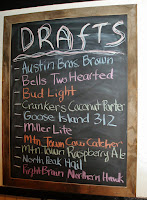 DRAFTS
- Austin Bros Brown
- Bells Two Hearted
- Bud Light
- Crankers Coconut Porter
- Goose Island 312
- Miller Lite
- Mtn. Town Cow Catcher
- Mtn. Town Raspberry Ale
- North Peak Hail
- Right Brain Northern Hawk